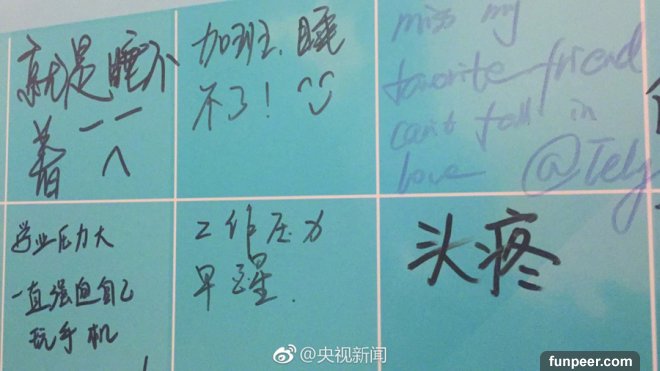 就是睡不
着
加班、睡
不了！
miss my
favorite friend
can't fall in
love @Tely
学业压力大
一直强迫自己
玩手机
工作压力
早醒.
头疼
@央视新闻
funpeer.com